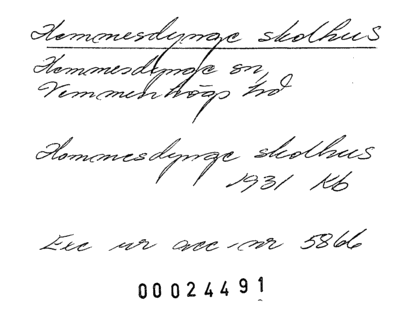 Hommesdynge skolhus
Hommesdynge sn,
Vemmenhögs hd
Hommesdynge skolhus
1931 Kb
Exc ur acc.-nr 5866
00024491